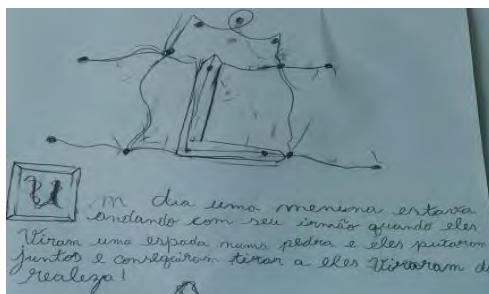 Um dia uma menina estava
andando com seu irmão quando eles
Viram uma espada numa pedra e eles puxaram
juntos e conseguiram tirar a eles Viraram d
realeza!